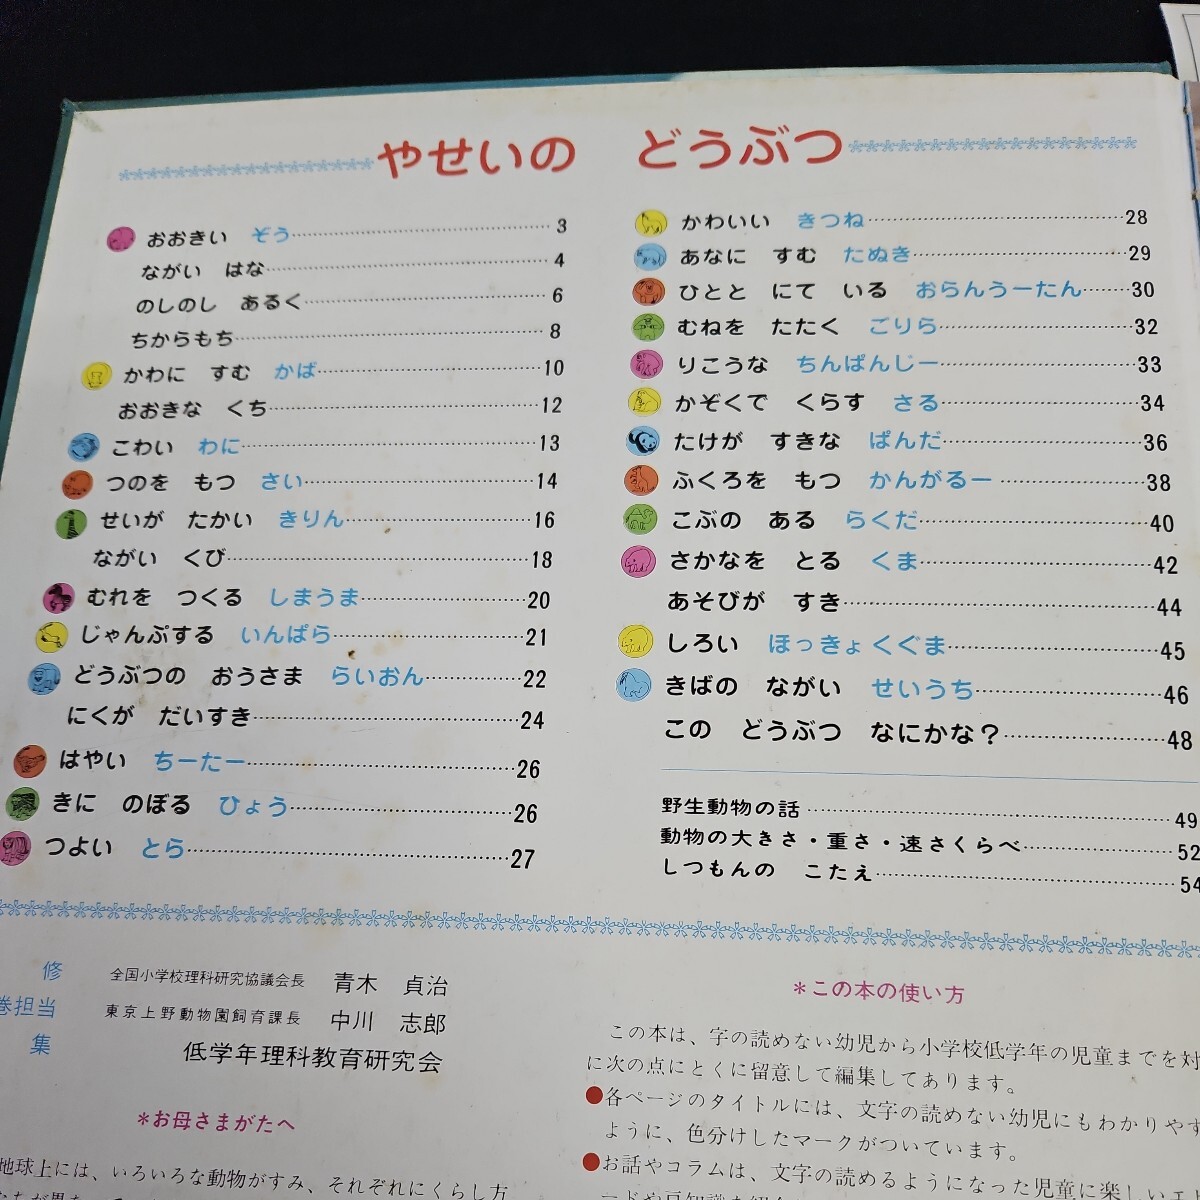 やせいの どうぶつ
おおきい ぞう 3
ながい はな 4
のしのし あるく 6
ちからもち 8
かわに すむ かば 10
おおきな くち 12
こわい わに 13
つのを もつ さい 14
せいが たかい きりん 16
ながい くび 18
むれを つくる しまうま 20
じゃんぷする いんぱら 21
どうぶつの おうさま らいおん 22
にくが だいすき 24
はやい ちーたー 26
きに のぼる ひょう 26
つよい とら 27
かわいい きつね 28
あなに すむ たぬき 29
ひとと にて いる おらんうーたん 30
むねを たたく ごりら 32
りこうな ちんぱんじー 33
かぞくで くらす さる 34
たけが すきな ぱんだ 36
ふくろを もつ かんがるー 38
こぶの ある らくだ 40
さかなを とる くま 42
あそびが すき 44
しろい ほっきょくぐま 45
きばの ながい せいうち 46
この どうぶつ なにかな? 48
野生動物の話 49
動物の大きさ・重さ・速さくらべ 52
しつもんの こたえ 54
修 全国小学校理科研究協議会長 青木 貞治
巻担当 東京上野動物園飼育課長 中川 志郎
集 低学年理科教育研究会
*お母さまがたへ
地球上には、いろいろな動物がすみ、それぞれにくらし方
*この本の使い方
この本は、字の読めない幼児から小学校低学年の児童までを対
に次の点にとくに留意して編集してあります。
●各ページのタイトルには、文字の読めない幼児にもわかりやす
ように、色分けしたマークがついています。
●お話やコラムは、文字の読めるようになった児童に楽しい